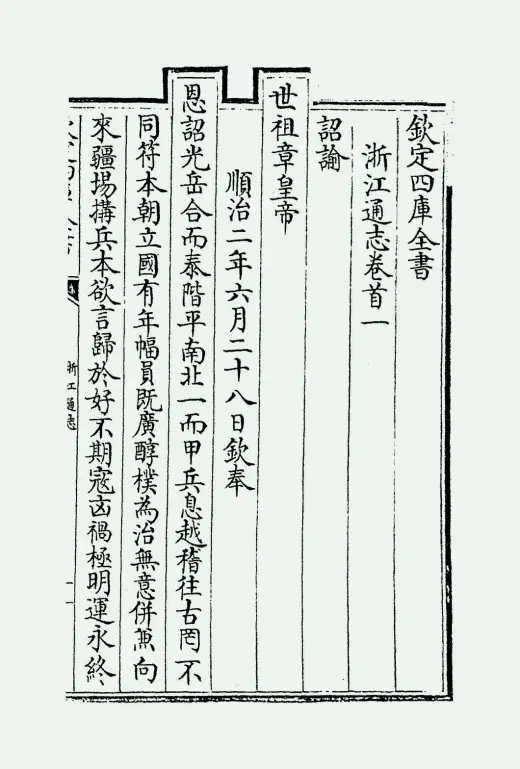 欽定四庫全書
浙江通志卷首一
詔諭
世祖章皇帝
順治二年六月二十八日欽奉
恩詔光岳合而泰階平南北一而甲兵息越稽往古罔不
同符本朝立國有年幅員既廣醇樸為治無意併兼向
來疆場搆兵本欲言歸於好不期寇凶禍極明運永終
浙江通志